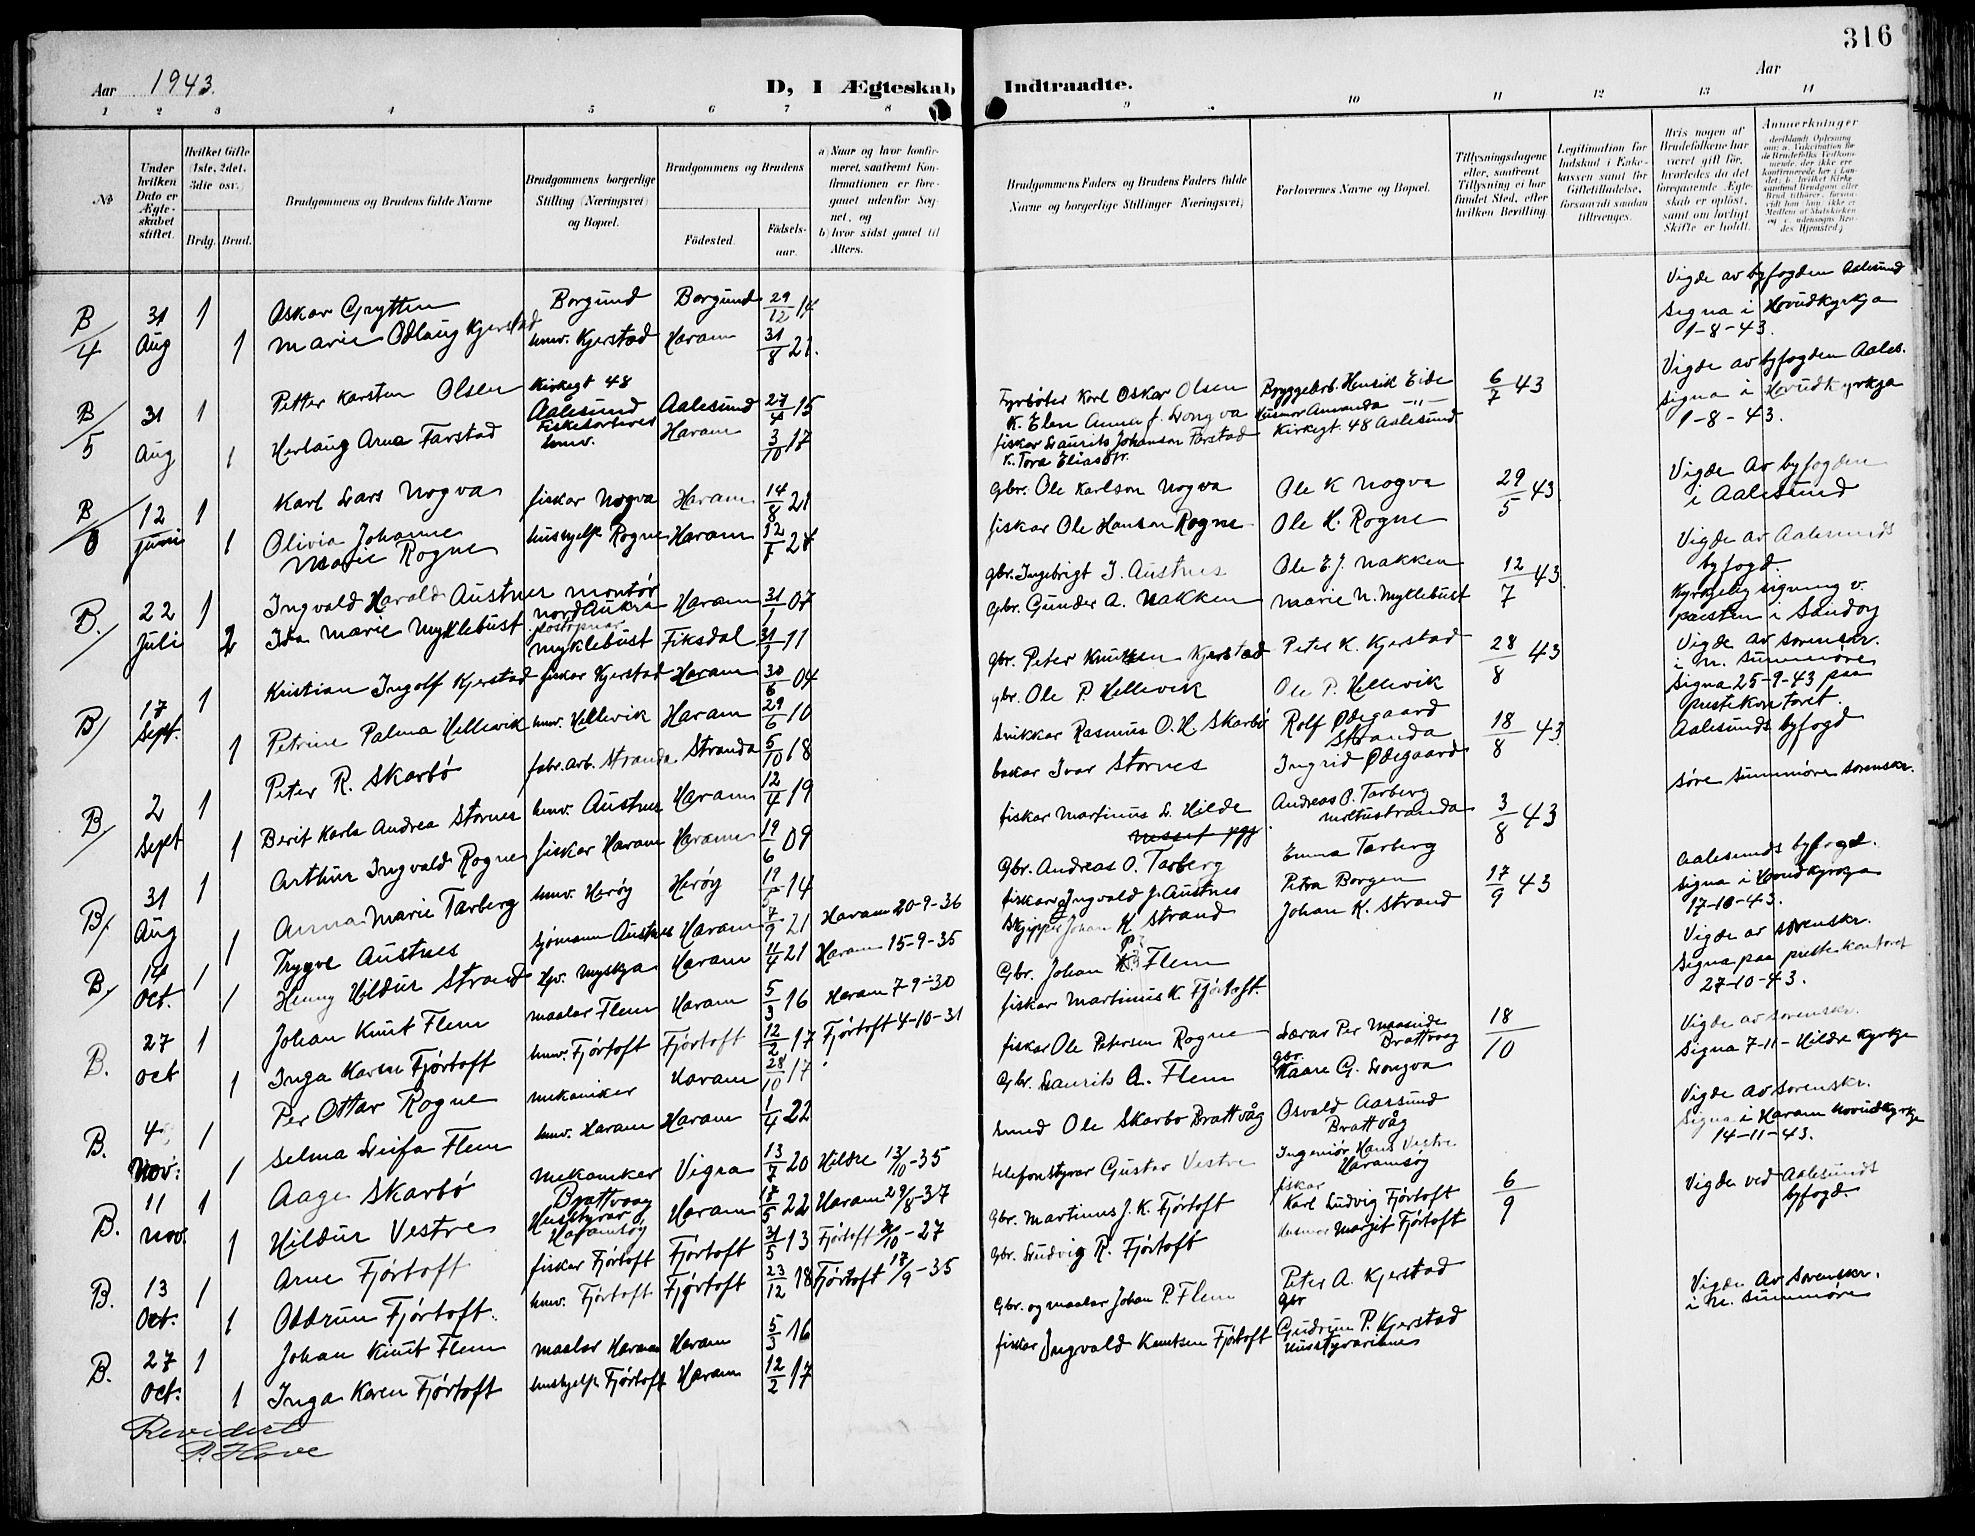 316
Aar 1943.
D, I Ægteskab Indtraadte.
Aar
1 2 3 4 5 6 7 8 9 10 11 12 13 14
No
Under hvilken Dato er Ægteskabet stiftet.
Hvilket Gifte (1ste, 2det, 3die osv.)
Brdg. Brud.
Brudgommens og Brudens fulde Navne
Brudgommens borgerlige Stilling (Næringsvei) og Bopæl.
Brudgommens og Brudens
Fødested. Fødselsaar.
a) Naar og hvor konfirmeret, saafremt Konfirmationen er foregaaet udenfor Sognet, og
b) hvor sidst gaaet til Alters.
Brudgommens Faders og Brudens Faders fulde Navne og borgerlige Stillinger (Næringsvei)
Forlovernes Navne og Bopæl.
Tillysningsdagene eller, saafremt Tillysning ei har fundet Sted, efter hvilken Bevilling
Legitimation for Indskud i Enkekassen samt for Giftetilladelse, forsaavidt saadan tiltrænges.
Hvis nogen af Brudefolkene har været gift før, hvorledes da det foregaaende Ægteskab er opløst, samt om lovligt Skifte er holdt.
Anmerkninger
B/4 31 Aug 1 Oskar Grytten Borgund Borgund 29/12 14
1 Marie Odlaug Kjerstad hmv. Kjerstad Haram 31/8 21.
Vigde av byfogden Aalesund
Signa i Hovudkyrkja
1-8-43.
B/5 31 Aug 1 Petter Karsten Olsen Kirkegt 48 Aalesund Aalesund 27/4 15
1 Herlaug Arna Farstad hmv. Haram 3/10 17
Fyrbøter Karl Oskar Olsen Bryggearb. Henrik Eide 6/7 43
K. Elen Anna f. Longva Husmor Amanda -"-
fiskar Laurits Johansen Farstad Kirkegt. 48 Aalesund
K. Tora Eliasdtr.
Vigde av byfogden Aales.
Signa i Hovudkyrkja
1-8-43.
B/6 12 juni 1 Karl Lars Nogva fiskar Nogva Haram 14/8 21
1 Olivia Johanne Marie Rogne hushjelp Rogne Haram 12/1 24
gbr. Ole Karlson Nogva Ole K Nogva 29/5 43
fiskar Ole Hansen Rogne Ole H. Rogne
Vigde av byfogden
i Aalesund
B. 22 Juli 1 Ingvald Harald Austnes montør Nord Aukra Haram 31/1 07
2 Ida Marie Myklebust Myklebust Fiksdal 31/1 11
gbr. Ingebrigt J. Austnes Ole E. J. Nakken 12/7 43
gbr. Gunder A. Nakken Marie N. Myklebust
Vigde av Aalesunds
byfogd.
Kyrkjeleg signing v.
presten i Sandøy
B/ 17 Sept. 1 Kristian Ingolf Kjerstad fiskar Kjerstad Haram 30/6 04
1 Petrine Palma Hellevik hmv. Hellevik Haram 29/6 10
gbr. Peter Knutsen Kjerstad Peter K. Kjerstad 28/8 43
gbr. Ole P. Hellevik Ole P. Hellevik
Vigde av sorenskr.
i N. Sunnmøre
Signa 25-9-43 paa
prestekontoret.
B/ 2 Sept 1 Peter R. Skarbø fabr. arb. Stranda Stranda 5/10 18
1 Berit Karla Andrea Stornes hmv. Austnes Haram 12/4 19
Snikkar Rasmus O. H. Skarbø Rolf Ødegaard Stranda 18/8 43
baker Ivar Stornes Ingrid Ødegaard
Aalesunds byfogd
B/. 31 Aug 1 Arthur Ingvald Rogne fiskar Haram Haram 19/6 09
1 Anna Marie Tarberg hmv. Herøy Herøy 17/5 14
fiskar Martinus L. Hilde Andreas O. Tarberg 3/8 43
Gbr. Andreas O. Tarberg Emma Tarberg
Søre Sunnmøre sorenskr.
B/ 14 Oct. 1 Trygve Austnes sjømann Austnes Haram 7/9 21 Haram 20-9-36
1 Henny Hildur Strand Hjv. Myskja Haram 11/4 21 Haram 15-9-35
fiskar Ingvald J. Austnes Petra Borgen 17/9 43
Skipper Johan K Strand Johan K. Strand
Aalesunds byfogd.
Signa i Hovudkyrkja
17-10-43.
B. 27 oct 1 Johan Knut Flem maalar Flem Haram 5/3 16 Haram 7-9-30
1 Inga Karen Fjørtoft hmv. Fjørtoft Fjørtoft 12/2 17 Fjørtoft 4-10-31
Gbr. Johan P. Flem
fiskar Martinus K. Fjørtoft.
Vigde av sorenskr.
Signa paa prestekontoret
27-10-43.
B. 4 Nov. 1 Per Ottar Rogne mekaniker Haram 28/10 17
1 Selma Leifa Flem hmv. Haram Haram 1/4 22
fiskar Ole Petersen Rogne Lærar Per Maaseide Brattvaag 18/10
Gbr. Laurits A. Flem gbr. Kaare G. Longva
Vigde av sorenskr.
Signa 7-11- Hildre Kyrkje
B. 11 nov. 1 Aage Skarbø Mekaniker Brattvaag Vigra 13/7 20 Hildre 13/10-35
1 Hildur Vestre Husstyrar Haramsøy Haram 17/5 22 Haram 29/8-37
Smed Ole Skarbø Brattvåg Osvald Aarsund Brattvåg
telefonstyrar Gustav Vestre Ingeniør Hans Vestre Haramsøy
Vigde av sorenskr.
Signa i Haram Hovudkyrkje
14-11-43.
B. 13 Oct. 1 Arne Fjørtoft fiskar Fjørtoft Fjørtoft 31/5 13 Fjørtoft -27
1 Oddrun Fjørtoft. hmv. Fjørtoft Fjørtoft 23/12 18 Fjørtoft 17/9-35
gbr. Martinus J. K. Fjørtoft fiskar Karl Ludvig Fjørtoft 6/9
gbr. Ludvig R. Fjørtoft Husmor Margit Fjørtoft
Vigde ved Aalesunds
byfogd.
B. 27 Oct. 1 Johan Knut Flem maalar Haram Haram 5/3 16
1 Inga Karen Fjørtoft hushjelp Fjørtoft Haram 12/2 17
Gbr. og maalar Johan P. Flem Peter A. Kjerstad gbr
fiskar Ingvald Knutsen Fjørtoft Gudrun P. Kjerstad
Vigde av sorenskr.
i N. Sunnmøre
Revidert
P. Hove